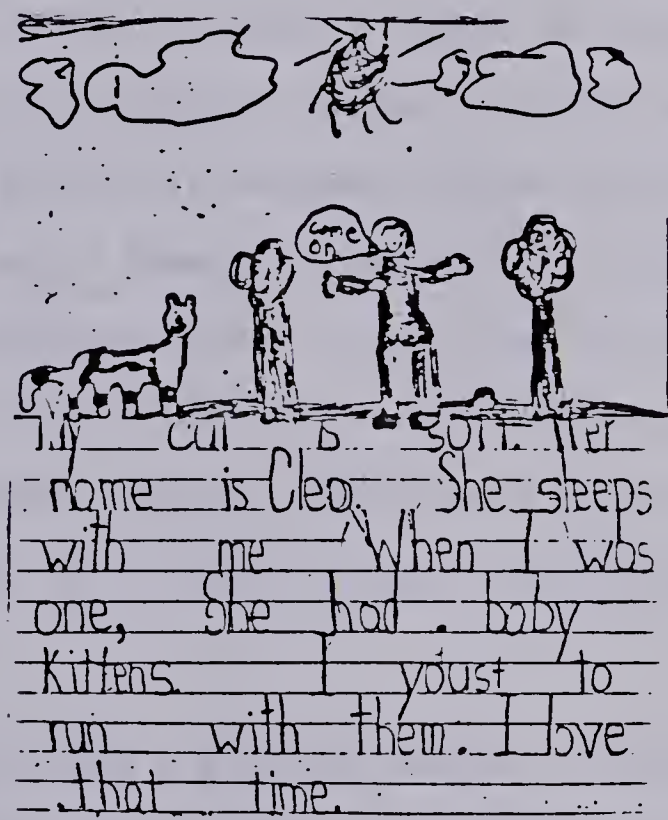 Come
on
My cat is soft. Her
name is Cleo. She sleeps
with me When I was
one, She had . baby
Kittens. I youst to
run with them. I love
that time.